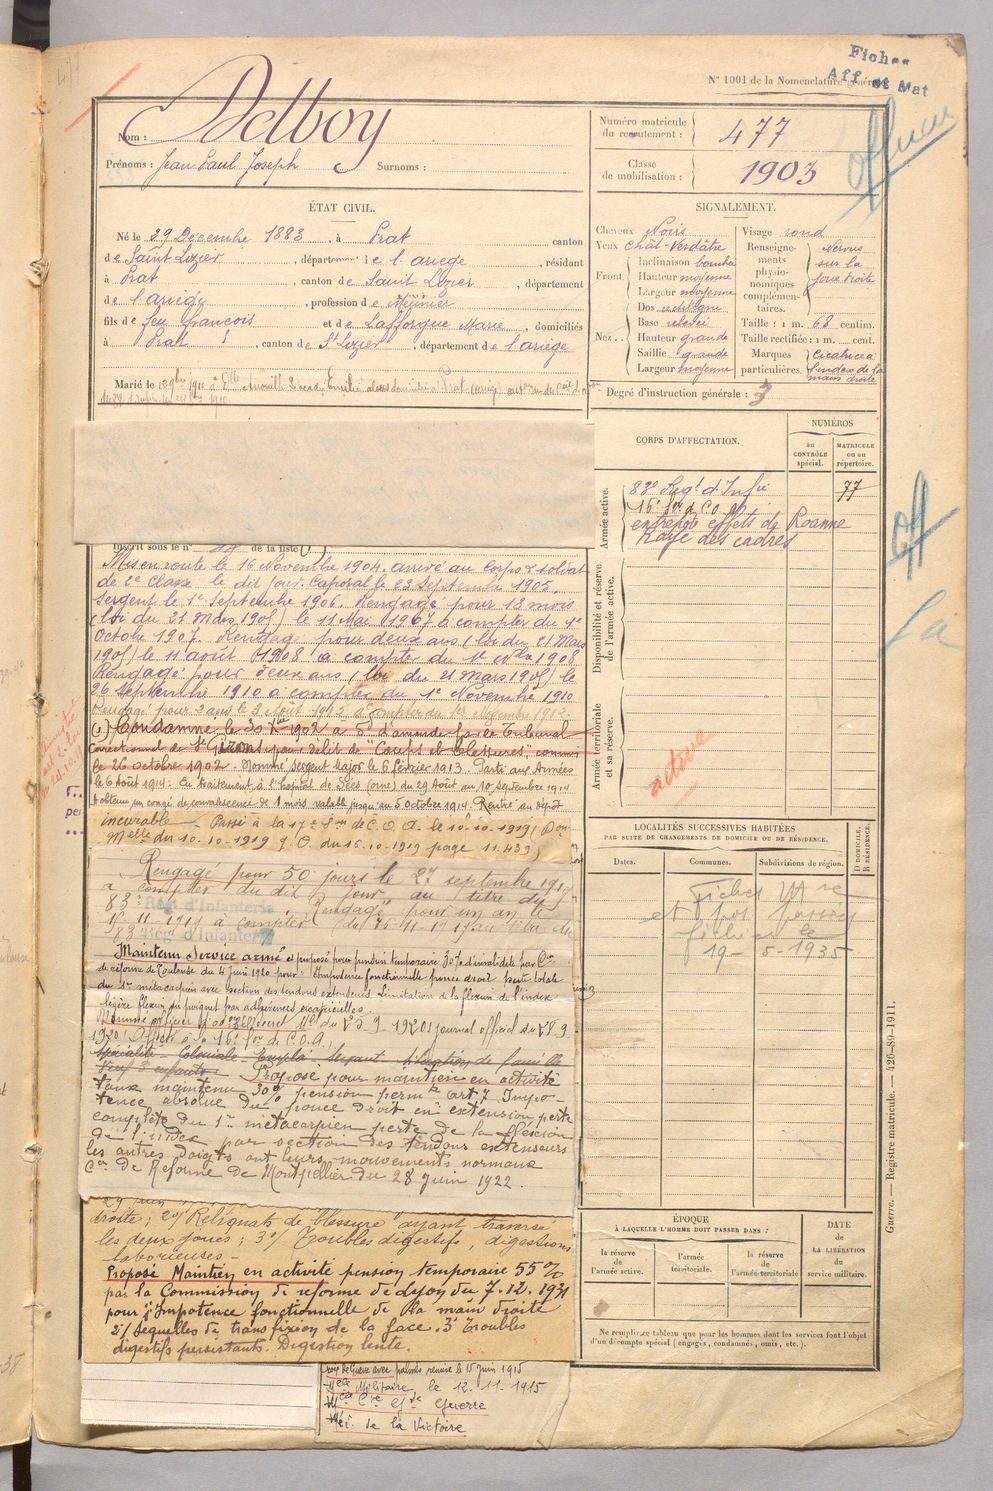 Fiches
Aff. et Mat
N° 1001 de la Nomenclature générale.
477
officier
Nom : Delboy
Prénoms : Jean Paul Joseph Surnoms :
Numéro matricule du recrutement : 477
Classe de mobilisation : 1903
ÉTAT CIVIL.
Né le 29 Décembre 1883, à Prat canton
de Saint Lizier, département de l'ariège, résidant
à Prat, canton de Saint Lizier, département
de l'ariège, profession de Meunier
fils de feu François et de Lafforgue Marie, domiciliés
à Prat, canton de St Lizier, département de l'ariège
Marié le
SIGNALEMENT.
Cheveux Noirs
Yeux chât-verdâtre
Front. Inclinaison bombé
Hauteur moyenne
Largeur moyenne
Nez. Dos rectiligne
Base relevé
Hauteur grande
Saillie grande
Largeur moyenne
Visage rond
Renseignements physionomiques complémentaires. sur la joue droite
Taille : 1 m. 68 centim.
Taille rectifiée : 1 m. cent.
Marques particulières. cicatrice l'index de la main droite
Degré d'instruction générale : 3
CORPS D'AFFECTATION.
NUMÉROS
au CONTRÔLE spécial.
MATRICULE ou au répertoire.
Armée active.
83e Régt d'Infie 77
16e Son d C.O.A
entrepôt effets de Roanne
Rayé des cadres
Disponibilité et réserve de l'armée active.
Armée territoriale et sa réserve.
active
off
La
Inscrit sous le n° 44 de la liste (1)
Mis en route le 16 Novembre 1904. arrivé au Corps & soldat
de 2e Classe le dit jour. Caporal le 23 Septembre 1905.
Sergent le 1er Septembre 1906. Rengagé pour 18 mois
(loi du 21 Mars 1905) le 11 Mai 1907 à compter du 1er
Octobre 1907. Rengagé pour deux ans (loi du 21 Mars
1905) le 11 août 1908 à compter du 1er Nbre 1908
Rengagé pour deux ans (loi du 21 Mars 1905) le
26 Septembre 1910 à compter du 1er Novembre 1910
Rengagé pour 2 ans le 2 Août 1912 à compter du 1er Novembre 1912.
(1) Condamné le 30 Xbre 1902 à 5f d'amende par le Tribunal
Correctionnel de St Girons pour délit de "Coups et blessures", commis
le 26 octobre 1902. Nommé Sergent Major le 6 février 1913. Parti aux Armées
le 6 Août 1914. En traitement à l'hôpital de Sées (orne) du 29 Août au 10 Septembre 1914
Obtenu un congé de convalescence de 1 mois valable jusqu'au 5 octobre 1914. Rentré au dépôt
incurable. Passé à la 17e Son de C.O.A. le 10-10-1919 (Don
Melle du 10-10-1919 J.O. du 15-10-1919 page 11.439)
Rengagé pour 50 jours le 27 septembre 1919
à compter du dit jour au titre du
83e Régt d'Infanterie. Rengagé pour un an le
15-11-1919 à compter du 15-11-1919 au titre du
83e Régt d'Infanterie
Maintenu Service armé et proposé pour pension temporaire 30% d'invalidité par Con
de réforme de Toulouse du 4 Juin 1920 pour : Impotence fonctionnelle pouce droit. perte totale
du 1er métacarpien avec section des tendons extenseurs. Limitation de la flexion de l'index
légère flexion du poignet par adhérences cicatricielles.
Affecté à la 16e Son de C.O.A.
Spécialité - Coloniale - Emploi Sergent - Situation de famille
Proposé pour maintien en activité
taux maintenu 30% pension permte art. 7 Impo-
tence absolue du pouce droit en extension perte
complète du 1er métacarpien perte de la flexion
de l'index par section des tendons extenseurs
les autres doigts ont leurs mouvements normaux
Con de Réforme de Montpellier du 28 Juin 1922.
droite ; 2°/ Reliquats de blessure ayant traversé
les deux joues ; 3°/ Troubles digestifs, digestions
laborieuses -
Proposé Maintien en activité pension temporaire 55%
par la Commission de réforme de dijon du 7.12.1931
pour 1° Impotence fonctionnelle de la main droite
2°/ Séquelles de transfixion de la face. 3° Troubles
digestifs persistants. Digestion lente.
Croix de Guerre avec palmes remise le 15 juin 1915
Mlle Militaire, le 12-11-1915
Mlle Cve Gde Guerre
Méd. de la Victoire
LOCALITÉS SUCCESSIVES HABITÉES
PAR SUITE DE CHANGEMENTS DE DOMICILE OU DE RÉSIDENCE.
Dates. Communes. Subdivisions de région. D DOMICILE, R RÉSIDENCE.
Fiches Mre
et passées
fichier le
19-5-1935
ÉPOQUE
À LAQUELLE L'HOMME DOIT PASSER DANS :
la réserve de l'armée active.
l'armée territoriale.
la réserve de l'armée territoriale
DATE
DE LA LIBÉRATION
du service militaire.
Ne remplir ce tableau que pour les hommes dont les services font l'objet
d'un décompte spécial (engagés, condamnés, omis, etc.).
Guerre. — Registre matricule. — 426-89-1911.